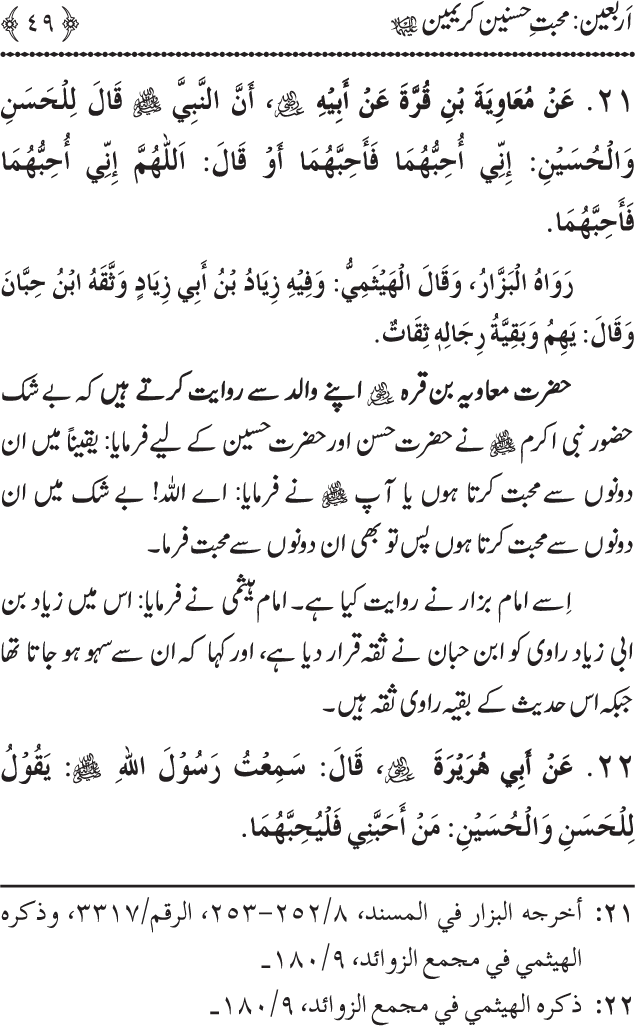 اَربعین: محبتِ حسنین کریمین علیہما السلام ﴿٤٩﴾
٢١. عَنْ مُعَاوِيَةَ بْنِ قُرَّةَ عَنْ أَبِيْهِ رضي الله عنه، أَنَّ النَّبِيَّ ﷺ قَالَ لِلْحَسَنِ
وَالْحُسَيْنِ: إِنِّي أُحِبُّهُمَا فَأَحِبَّهُمَا أَوْ قَالَ: اَللّٰهُمَّ إِنِّي أُحِبُّهُمَا
فَأَحِبَّهُمَا.
رَوَاهُ الْبَزَّارُ، وَقَالَ الْهَيْثَمِيُّ: وَفِيْهِ زِيَادُ بْنُ أَبِي زِيَادٍ وَثَّقَهُ ابْنُ حِبَّانَ
وَقَالَ: يَهِمُ وَبَقِيَّةُ رِجَالِهٖ ثِقَاتٌ.
حضرت معاویہ بن قرہ رضی اللہ عنہ اپنے والد سے روایت کرتے ہیں کہ بے شک
حضور نبی اکرم ﷺ نے حضرت حسن اور حضرت حسین کے لیے فرمایا: یقیناً میں ان
دونوں سے محبت کرتا ہوں یا آپ ﷺ نے فرمایا: اے اللہ! بے شک میں ان
دونوں سے محبت کرتا ہوں پس تو بھی ان دونوں سے محبت فرما۔
اِسے امام بزار نے روایت کیا ہے۔ امام ہیثمی نے فرمایا: اس میں زیاد بن
ابی زیاد راوی کو ابن حبان نے ثقہ قرار دیا ہے، اور کہا کہ ان سے سہو ہو جاتا تھا
جبکہ اس حدیث کے بقیہ راوی ثقہ ہیں۔
٢٢. عَنْ أَبِي هُرَيْرَةَ رضي الله عنه، قَالَ: سَمِعْتُ رَسُوْلَ اللهِ ﷺ: يَقُوْلُ
لِلْحَسَنِ وَالْحُسَيْنِ: مَنْ أَحَبَّنِي فَلْيُحِبَّهُمَا.
٢١: أخرجه البزار في المسند، ٨/٢٥٢-٢٥٣، الرقم/٣٣١٧، وذكره
الهيثمي في مجمع الزوائد، ٩/١٨٠۔
٢٢: ذكره الهيثمي في مجمع الزوائد، ٩/١٨٠۔